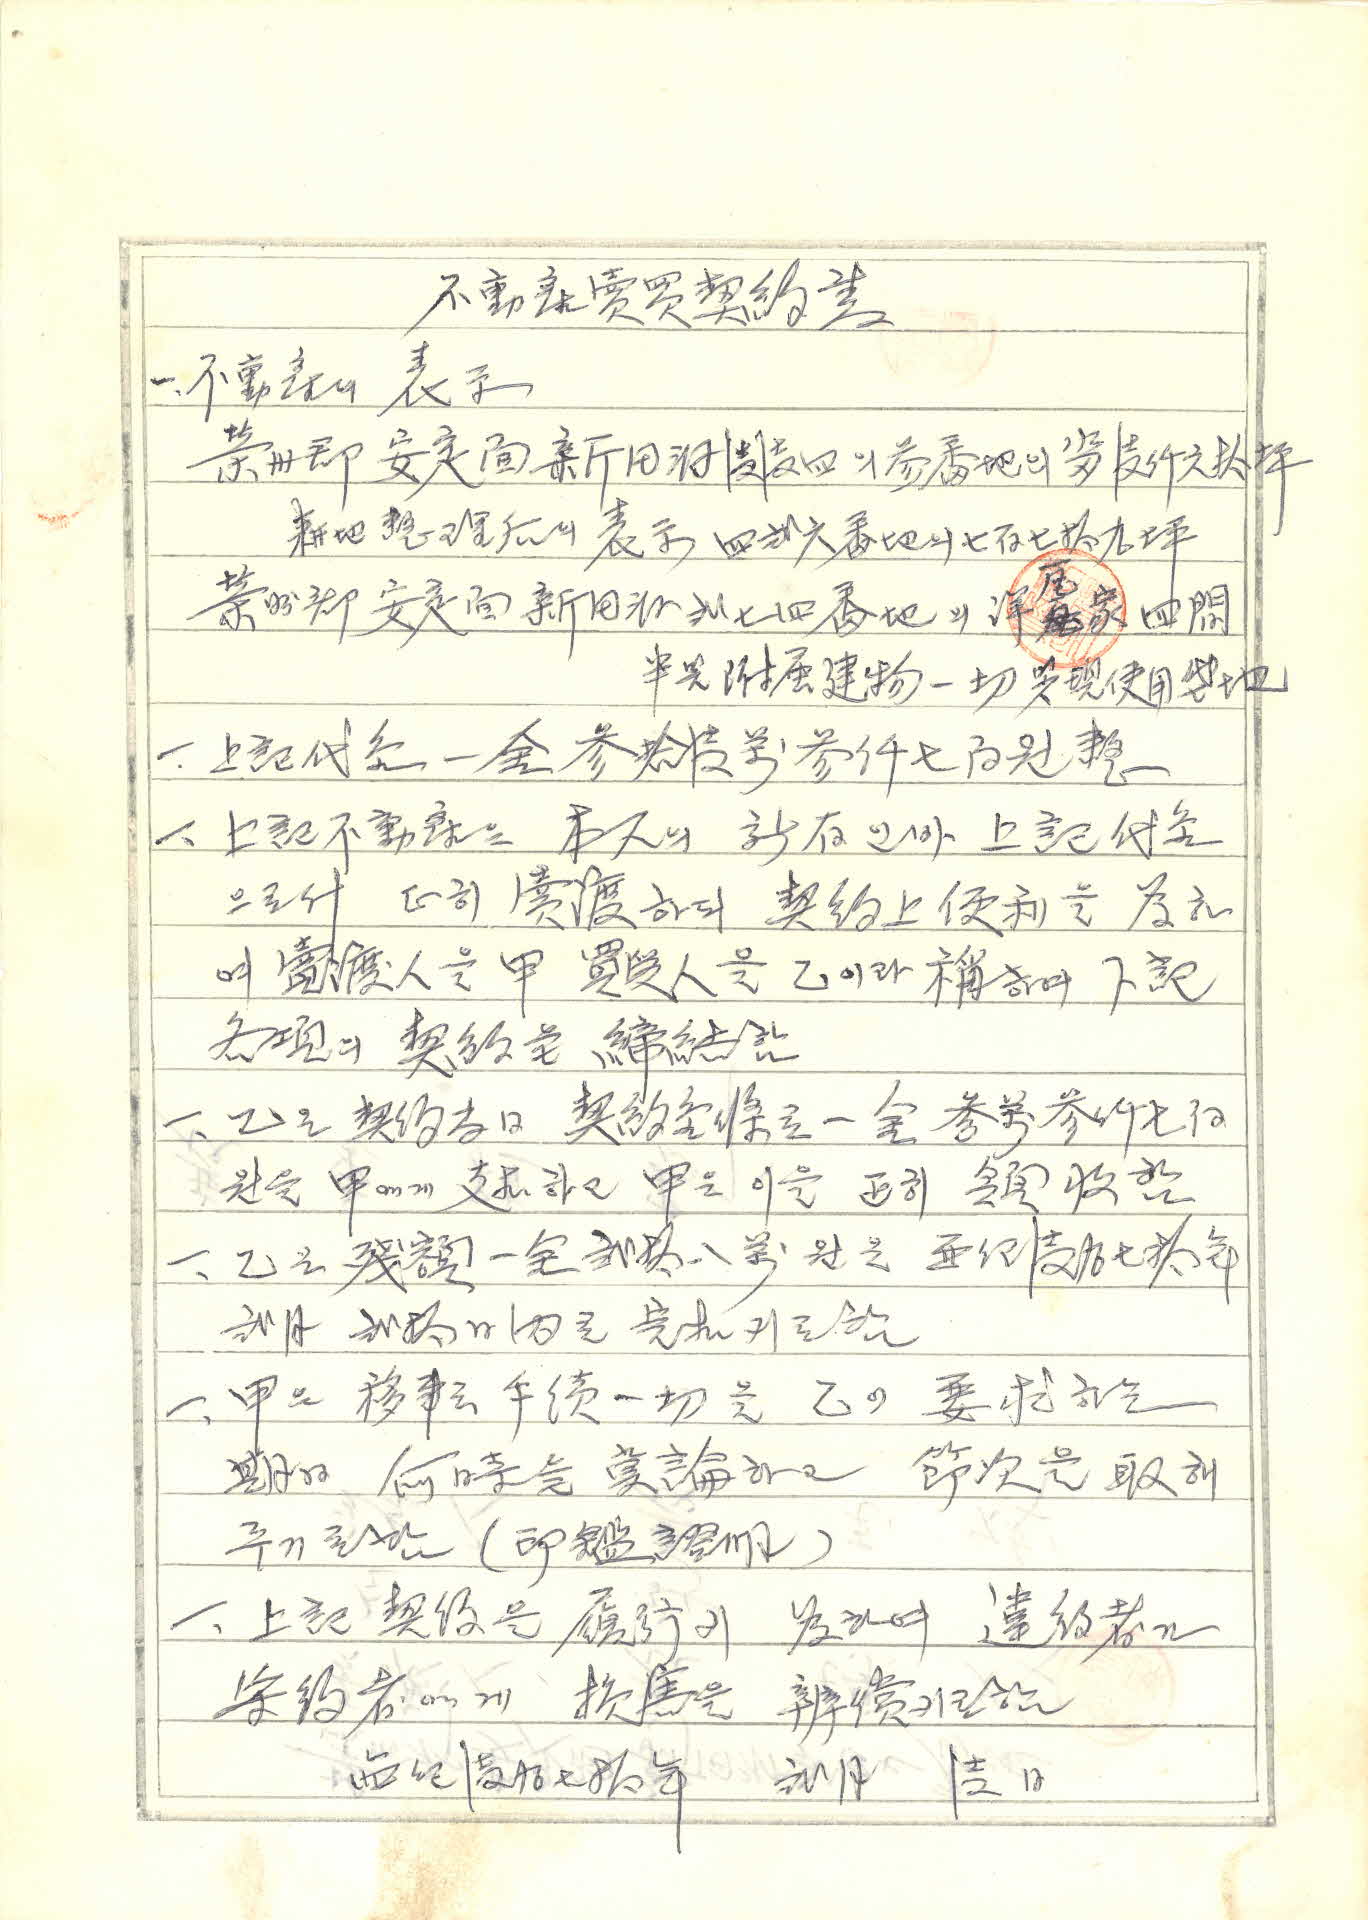 不動産賣買契約書
一. 不動産의 表示
榮州郡 安定面 新田洞 壹壹四의 參番地의 畓 壹仟六拾坪
耕地整理后의 表示 四貳六番地의 七百七拾九坪
榮州郡 安定面 新田洞 貳七四番地의 洋瓦家 四間
半과 附属建物一切 및 現使用垈地
一. 上記代金 一金 參拾壹萬參仟七百원整
一. 上記不動産은 本人의 所有인바 上記代金
으로서 正히 賣渡하되 契約上 便利을 爲하
여 賣渡人을 甲 買受人을 乙이라 稱하여 下記
各項의 契約을 締結함
一. 乙은 契約當日 契約金條로 一金 參萬參仟七百
원을 甲에게 支拂하고 甲은 이을 正히 領收함
一. 乙은 残額 一金 貳拾八萬원을 西紀 壹九七拾年
貳月 貳拾日 內로 完拂키로 함
一. 甲은 移転手續一切을 乙이 要求하는
期日 何時을 莫論하고 節次을 取해
주기로 함 (印鑑證明)
一. 上記 契約을 履行키 爲하여 違約者가
守約者에게 損害을 辨償키로 함
西紀 壹九七拾年 貳月 壹日